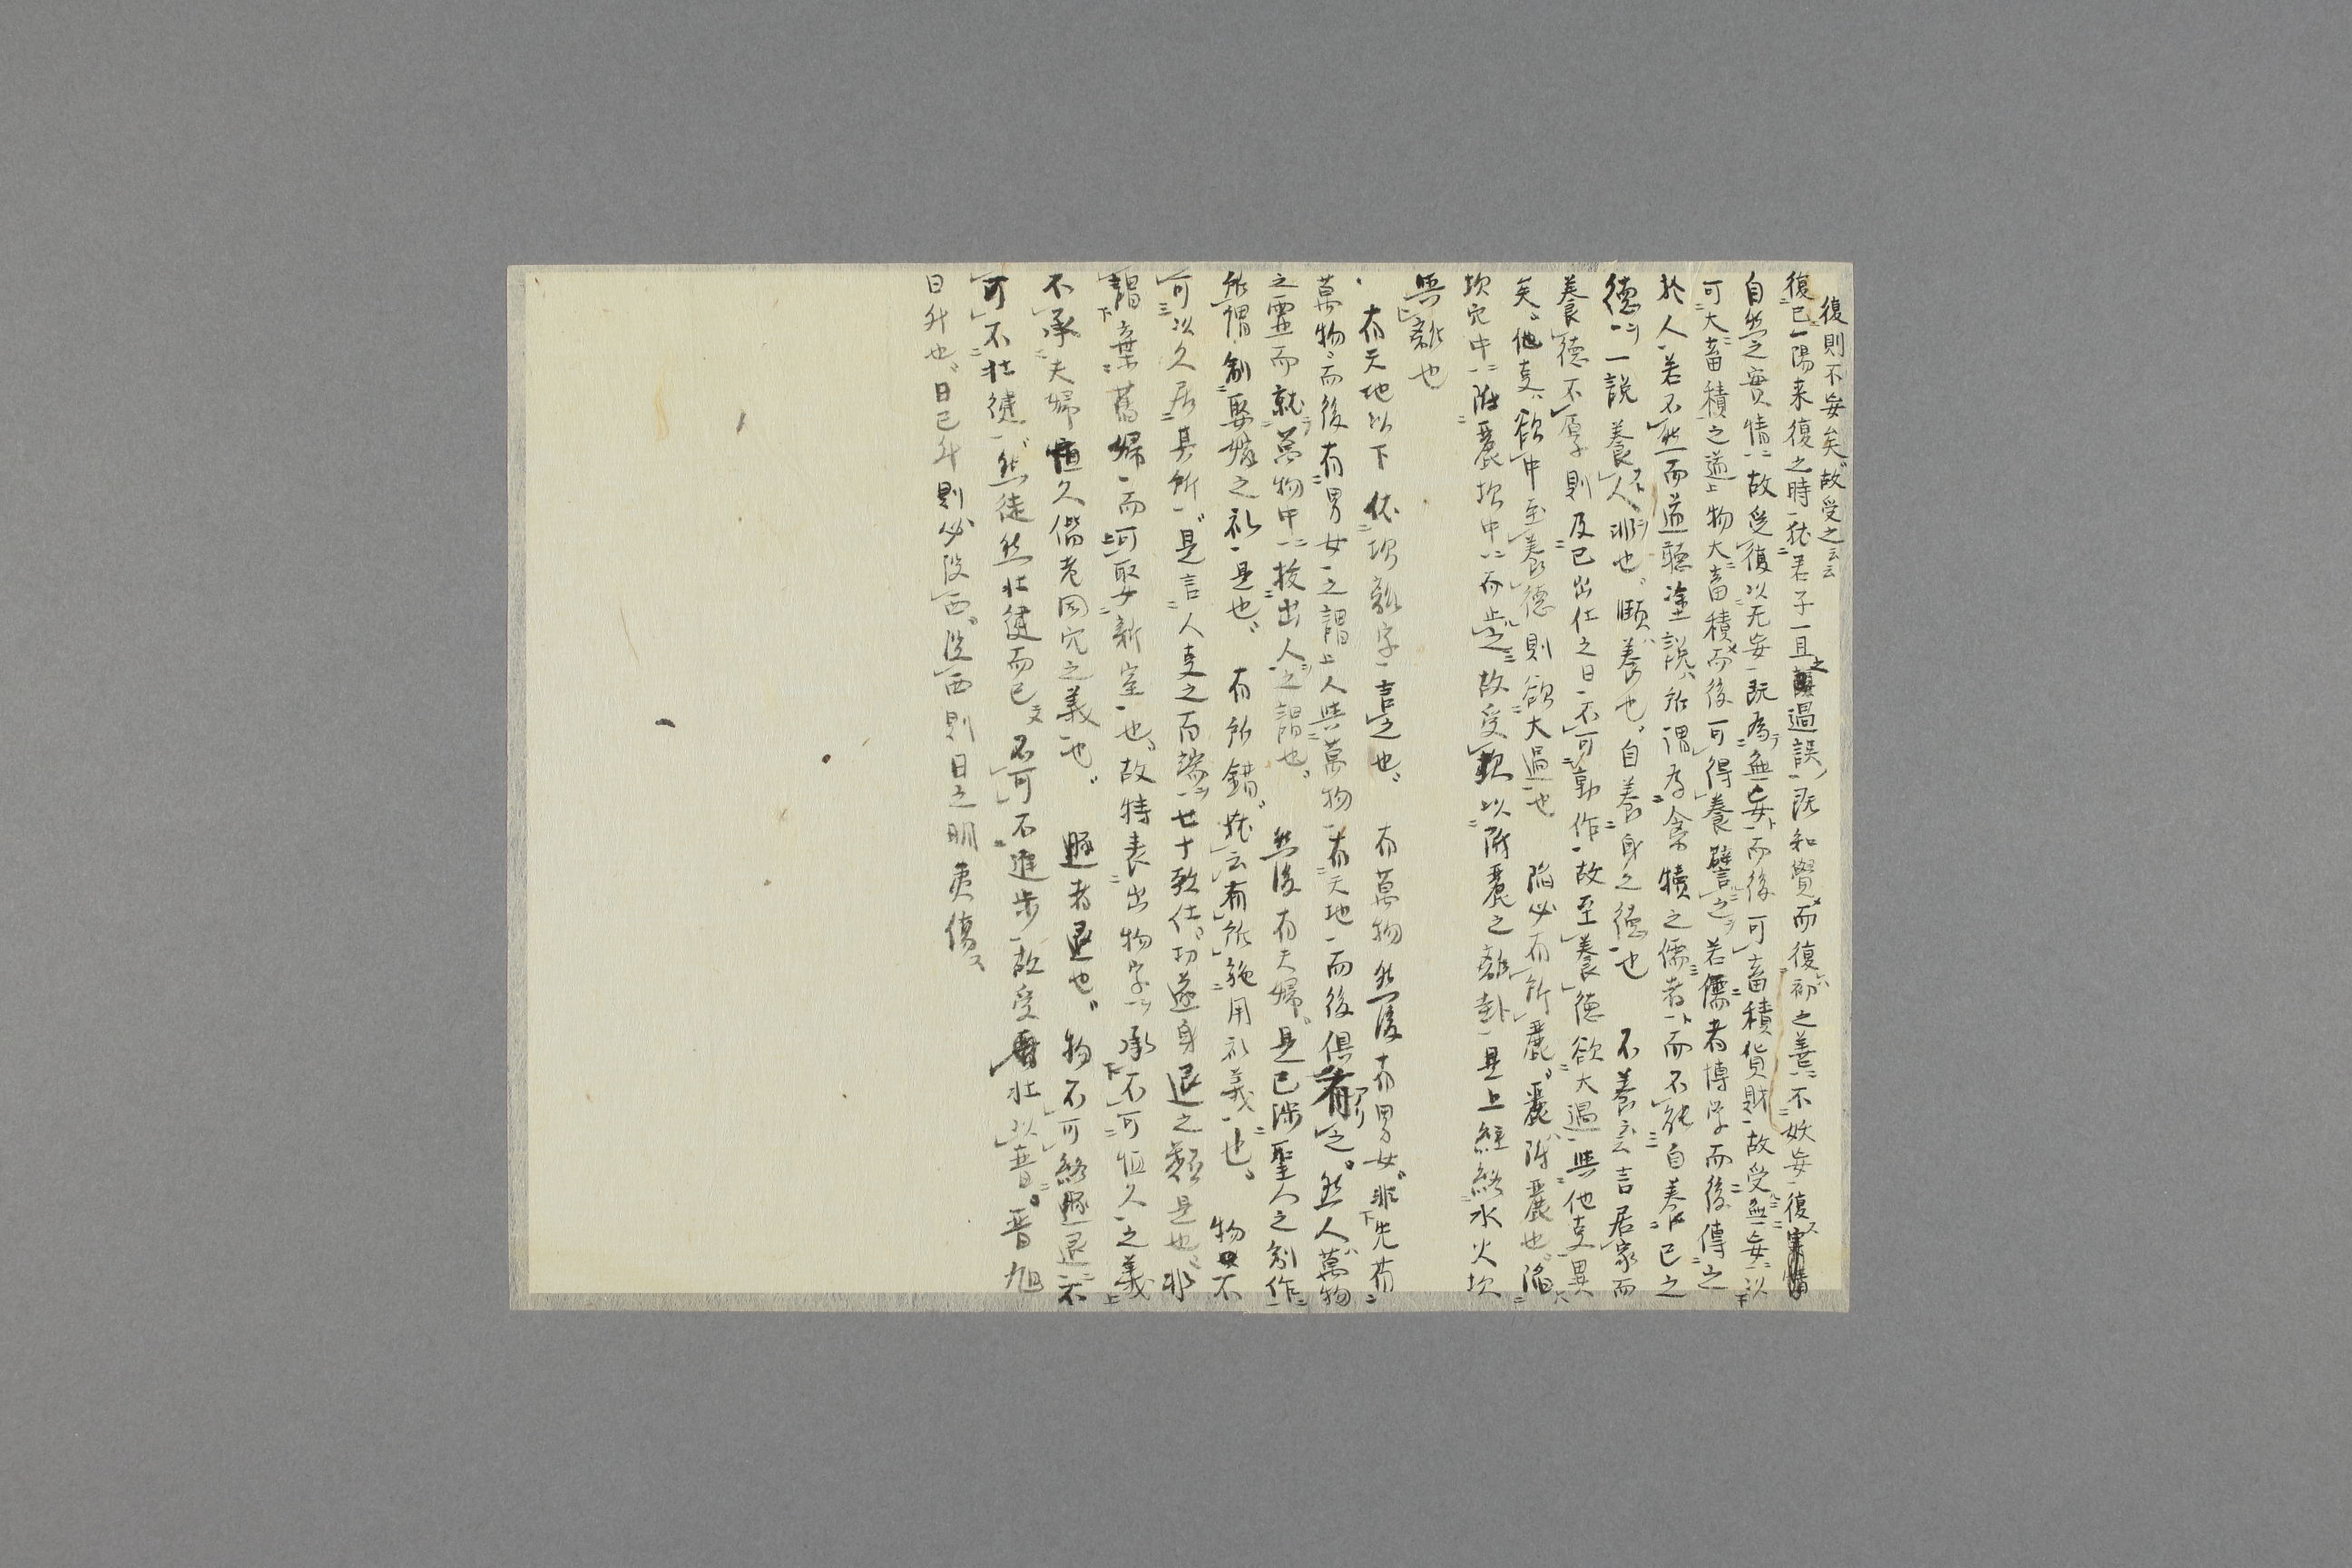 復則不妄矣故受之云云
復已一陽来復之時猶君子一旦之過誤既知覺而復初之善不妖妄復
自然之實情故受復以无妄既為無妄而後可畜積貨財故受無妄以
可大畜積之道物大畜積而後可得養譬之若儒者博学而後傳之
於人若不然而道聴塗説所謂為禽犢之儒者而不能自養己之
徳一説養人非也頤養也自養身之徳也 不養云言居家而
養徳不厚則及已出仕之日不可動作故至養徳欲大過與他支異
矣他支欲中至養徳則欲大過也 陥必有所麗麗附麗也陥
坎穴中附麗坎中而止之故受坎以附麗之離卦是上経終水火坎
與離也
有天地以下依坎離字言之也 有萬物然後有男女非先有
萬物而後有男女之謂上人與萬物有天地而後倶有之然人萬物
之霊而就萬物中抜出人之謂也 然後有夫婦是已渉聖人之創作
所謂創娶嫁之礼是也 有所錯猶云有所施用礼義也 物不
可以久居其所是言人支之両端七十致仕功遂身退之類是也非
謂棄舊婦而可娶新室也故特表出物字承不可恒久之義
不承夫婦恒久偕老同穴之義也 遯者退也物不可終遯退不
可不壮健然徒然壮健而已又不可不進歩故受大壮以晋晋旭
日升也日已升則必没西没西則日之明夷傷